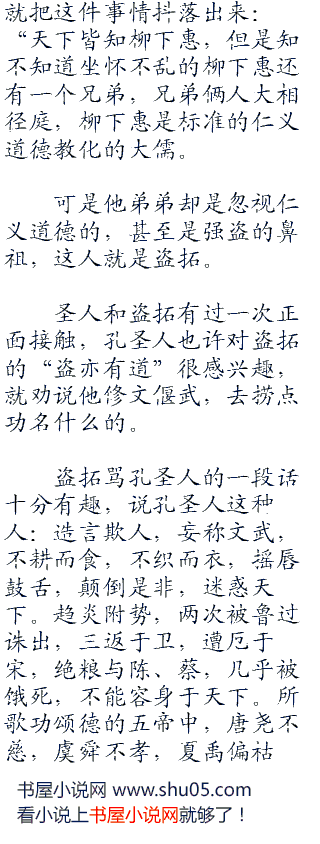 就把这件事情抖落出来：
“天下皆知柳下惠，但是知
不知道坐怀不乱的柳下惠还
有一个兄弟，兄弟俩人大相
径庭，柳下惠是标准的仁义
道德教化的大儒。
可是他弟弟却是忽视仁
义道德的，甚至是强盗的鼻
祖，这人就是盗拓。
圣人和盗拓有过一次正
面接触，孔圣人也许对盗拓
的“盗亦有道”很感兴趣，
就劝说他修文偃武，去捞点
功名什么的。
盗拓骂孔圣人的一段话
十分有趣，说孔圣人这种
人：造言欺人，妄称文武，
不耕而食，不织而衣，摇唇
鼓舌，颠倒是非，迷惑天
下。趋炎附势，两次被鲁过
诛出，三返于卫，遭厄于
宋，绝粮与陈、蔡，几乎被
饿死，不能容身于天下。所
歌功颂德的五帝中，唐尧不
慈，虞舜不孝，夏禹偏祜
书屋小说网 www.shu05.com
看小说上书屋小说网就够了！